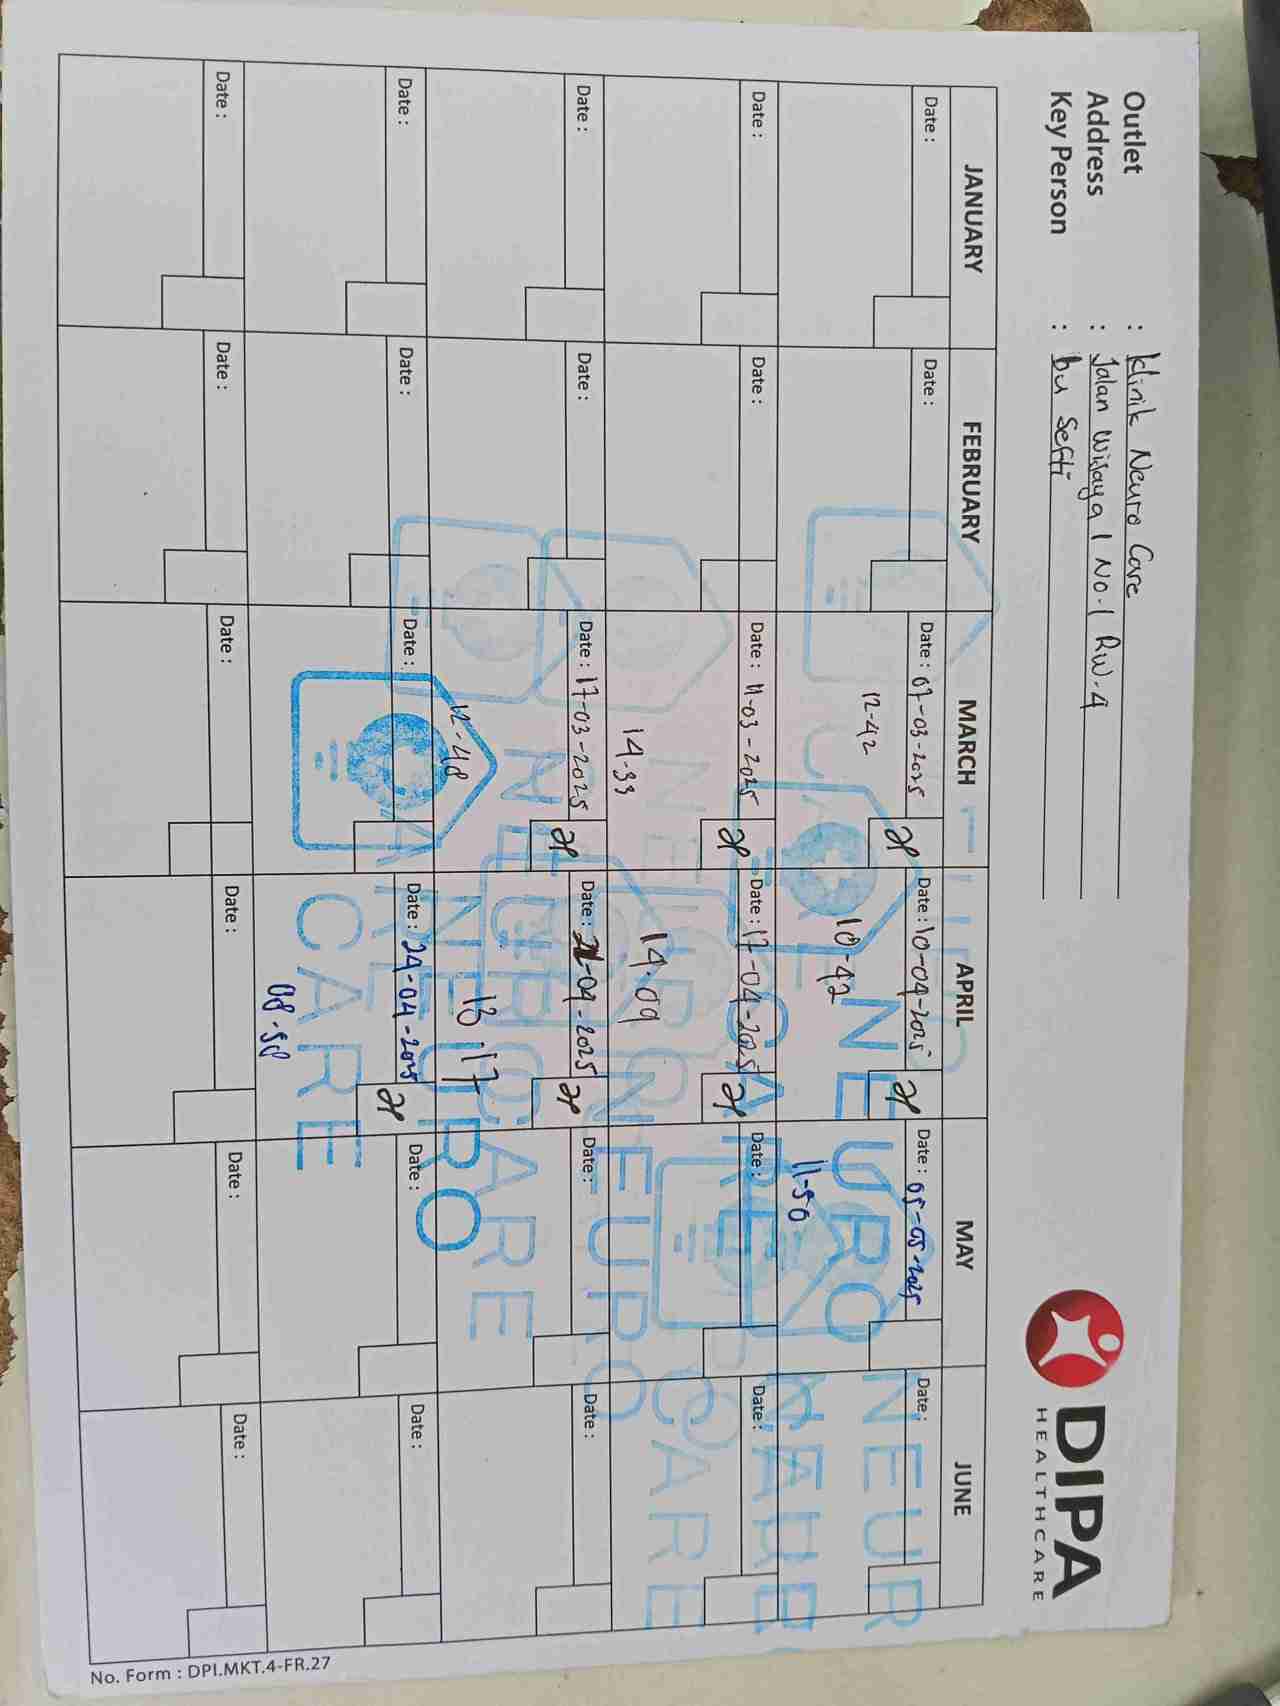 Outlet : Klinik Neuro Care
Address : Jalan Wijaya 1 No.1 RW.4
Key Person : bu Sefti
DIPA
HEALTHCARE
JANUARY FEBRUARY MARCH APRIL MAY JUNE
Date : Date : Date : 07-03-2025 Date : 10-04-2025 Date : 05-05-2025 Date :
12-42 10-42 11-50
Date : Date : Date : 11-03-2025 Date : 17-04-2025 Date : Date :
14-33 14.09
Date : Date : Date : 17-03-2025 Date : 21-04-2025 Date : Date :
12-48 13.17
Date : Date : Date : Date : 24-04-2025 Date : Date :
08-58
Date : Date : Date : Date : Date : Date :
NEURO
CARE
NEURO
CARE
NEURO
CARE
No. Form : DPI.MKT.4-FR.27